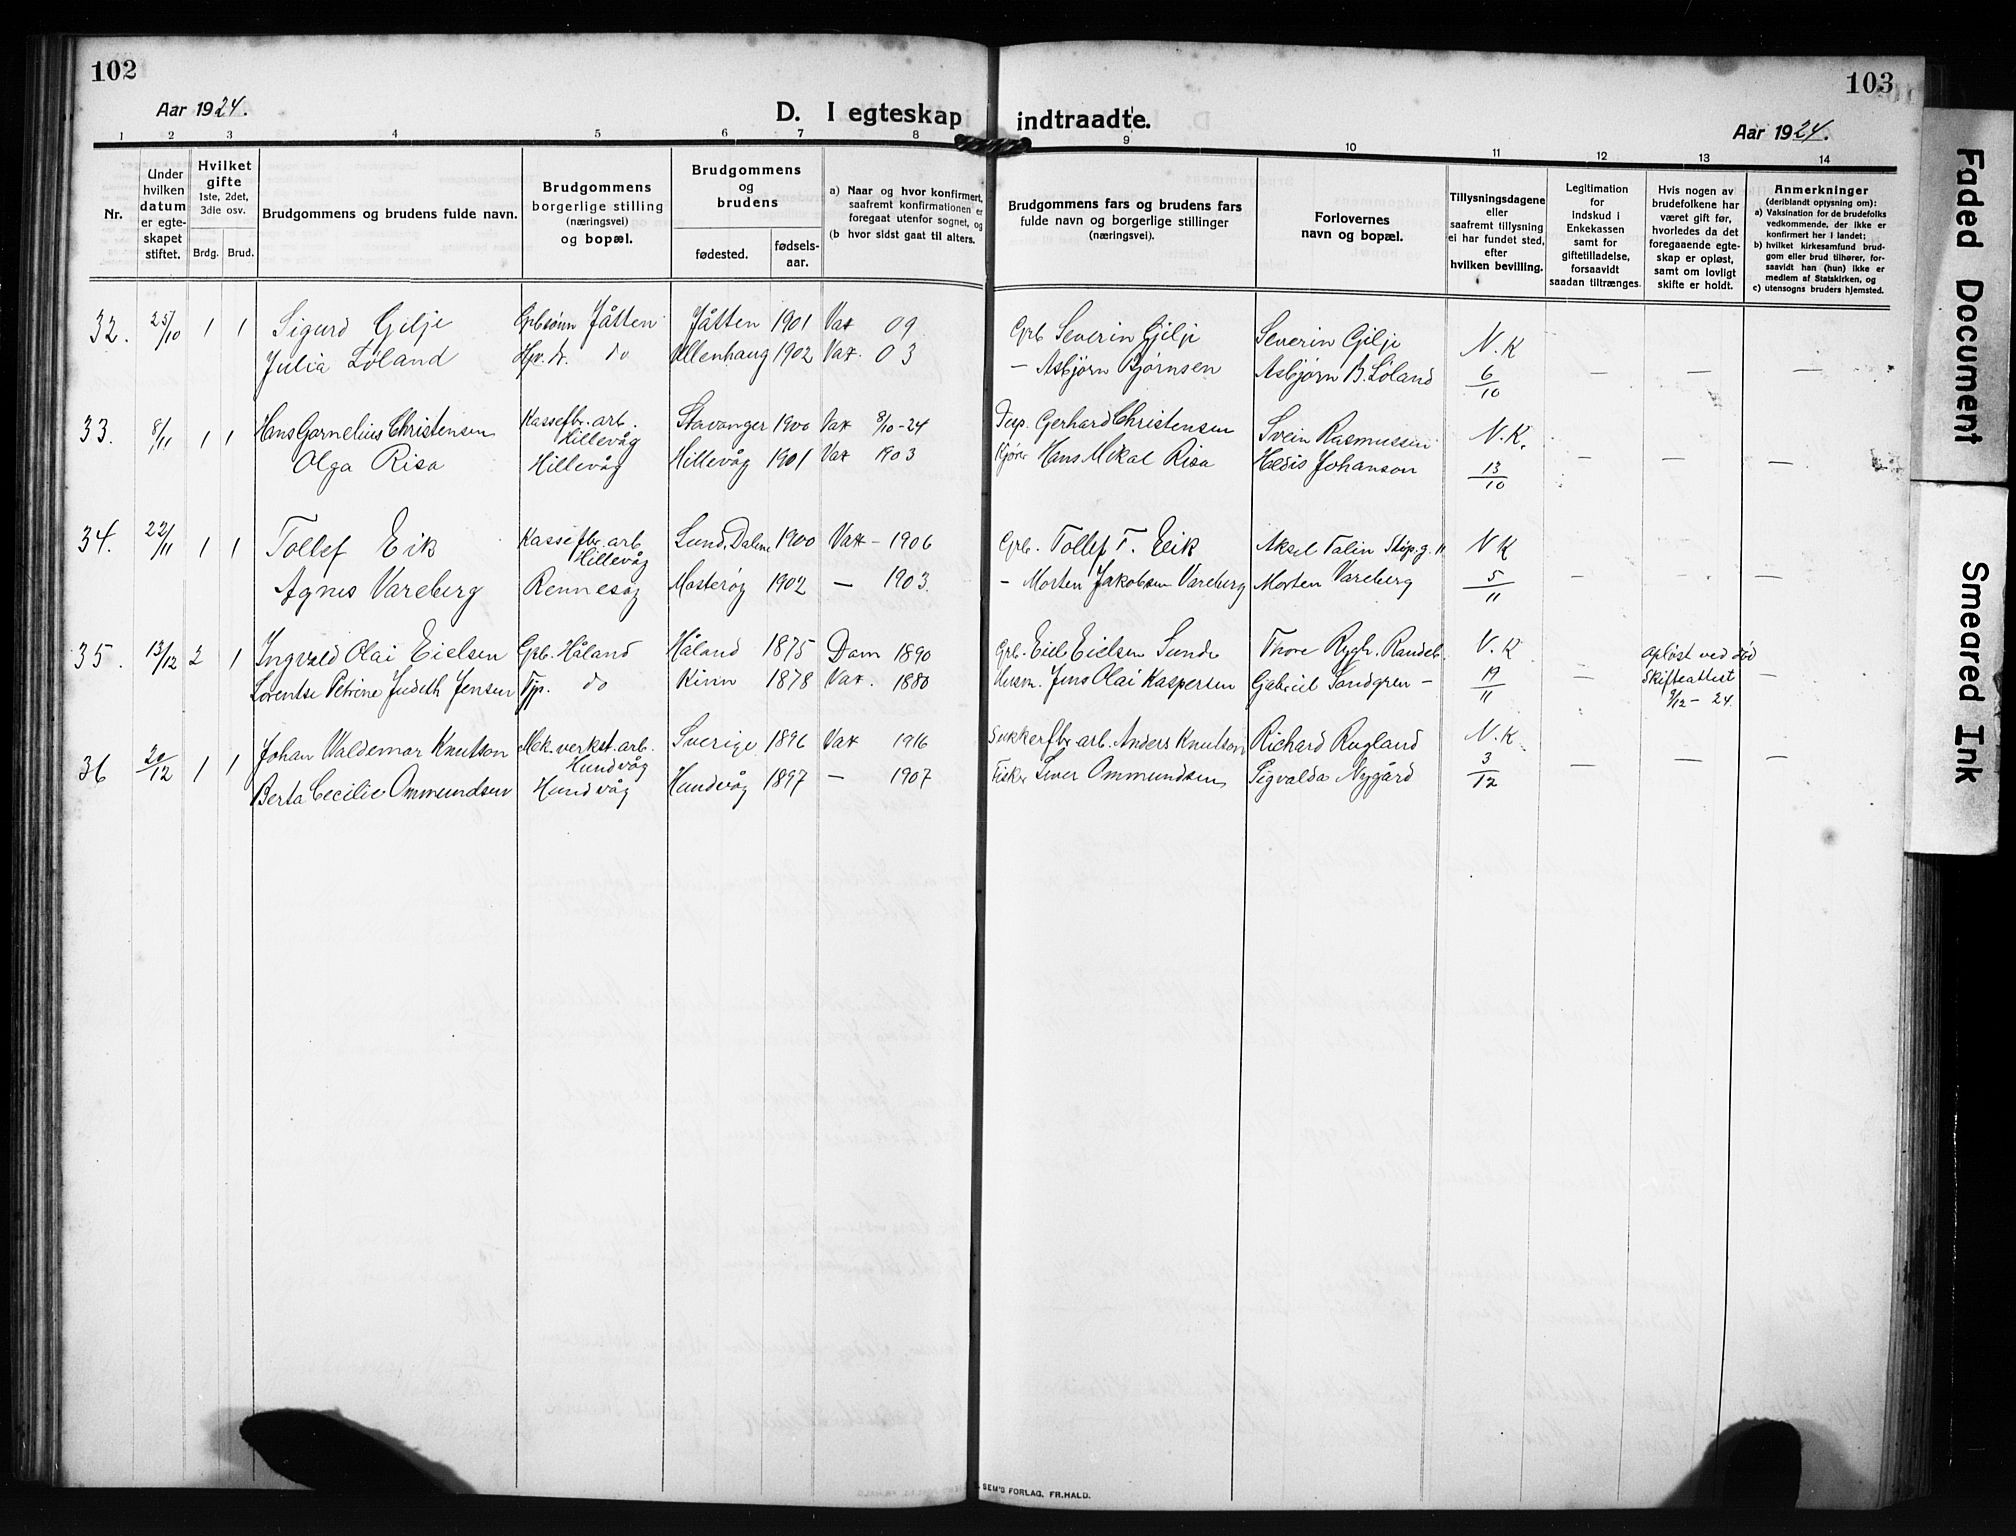 102
103
Aar 1924.
D. I egteskap indtraadte.
Aar 1924.
1 2 3 4 5 6 7 8 9 10 11 12 13 14
Nr.
Under hvilken datum er egteskapet stiftet.
Hvilket gifte 1ste, 2det, 3die osv.
Brdg. Brud.
Brudgommens og brudens fulde navn.
Brudgommens borgerlige stilling (næringsvei) og bopæl.
Brudgommens og brudens
fødested.
fødselsaar.
a) Naar og hvor konfirmert, saafremt konfirmationen er foregaat utenfor sognet, og
(b hvor sidst gaat til alters.
Brudgommens fars og brudens fars fulde navn og borgerlige stillinger (næringsvei).
Forlovernes navn og bopæl.
Tillysningsdagene eller saafremt tillysning ei har fundet sted, efter hvilken bevilling.
Legitimation for Indskud i Enkekassen samt for giftetilladelse, forsaavidt saadan tiltrænges.
Hvis nogen av brudefolkene har været gift før, hvorledes da det foregaaende egteskap er opløst, samt om lovligt skifte er holdt.
Anmerkninger (deriblandt oplysning om):
a) Vaksination for de brudefolks vedkommende, der ikke er konfirmert her i landet;
b) hvilket kirkesamfund brudgom eller brud tilhører, forsaavidt han (hun) ikke er medlem af Statskirken, og
c) utensogns bruders hjemsted.
32. 25/10 1 1 Sigurd Gilje Grbsønn Jåtten Jåtten 1901 Vax 09 Grb Severin Gilje Severin Gilje N. K
Julia Løland Hjv. dr. do Ullenhaug 1902 Vax. 03 — Asbjørn Bjørnsen Asbjørn B. Løland 6/10 — — —
33. 8/11 1 1 Hans Gornelius Christensen Kassefbr. arb. Hillevåg Stavanger 1900 Vax 8/10-24 Gerhard Christensen Svein Rasmussen N. K.
Olga Risa Hillevåg Hillevåg 1901 Vax 1903 Kjører Hans Mikal Risa Johanson 13/10 — — —
34. 22/11 1 1 Tollef Eik Kassefbr. arb Hillevåg Lund, Dalene 1900 Vax — 1906 Grb. Tollef T. Eik Aksel Talin N K
Agnes Vareberg Rennesøy Mosterøy 1902 — 1903. — Morten Jakobsen Vareberg Morten Vareberg 5/11 — — —
35. 13/12 2 1 Ingvald Olai Eielsen Grb. Håland Håland 1875 Dom 1890 Grb. Eiel Eielsen Sunde Thore Rygh. Randeb. N. K opløst ved død
Lorentse Petrine Judeth Jensen Tjp. do Kinn 1878 Vax. 1880 Husm. Jens Olai Kaspersen Gabriel Sandgren — 19/11 — Skifteattest 9/12 - 24. —
36 20/12 1 1 Johan Valdemar Knutson Mek. verkst. arb. Hundvåg Sverige 1896 Vax 1916 Sukkerfbr arb. Anders Knutson Richard Rugland N. K.
Berta Cecilie Ommundsen Hundvåg Hundvåg 1897 — 1907 Fisker Siver Ommundsen Sigvalda Nygård 3/12 — — —
SEM'S FORLAG, FR.HALD.
Faded Document
Smeared Ink